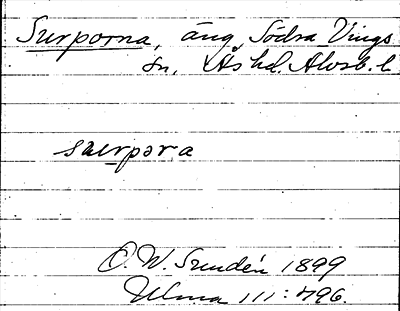 Surporna, äng, Södra Vings
sn, Ås hd. Älvsb. l.
surpor a
O. W. Sundén 1899
Ulma 111:496.